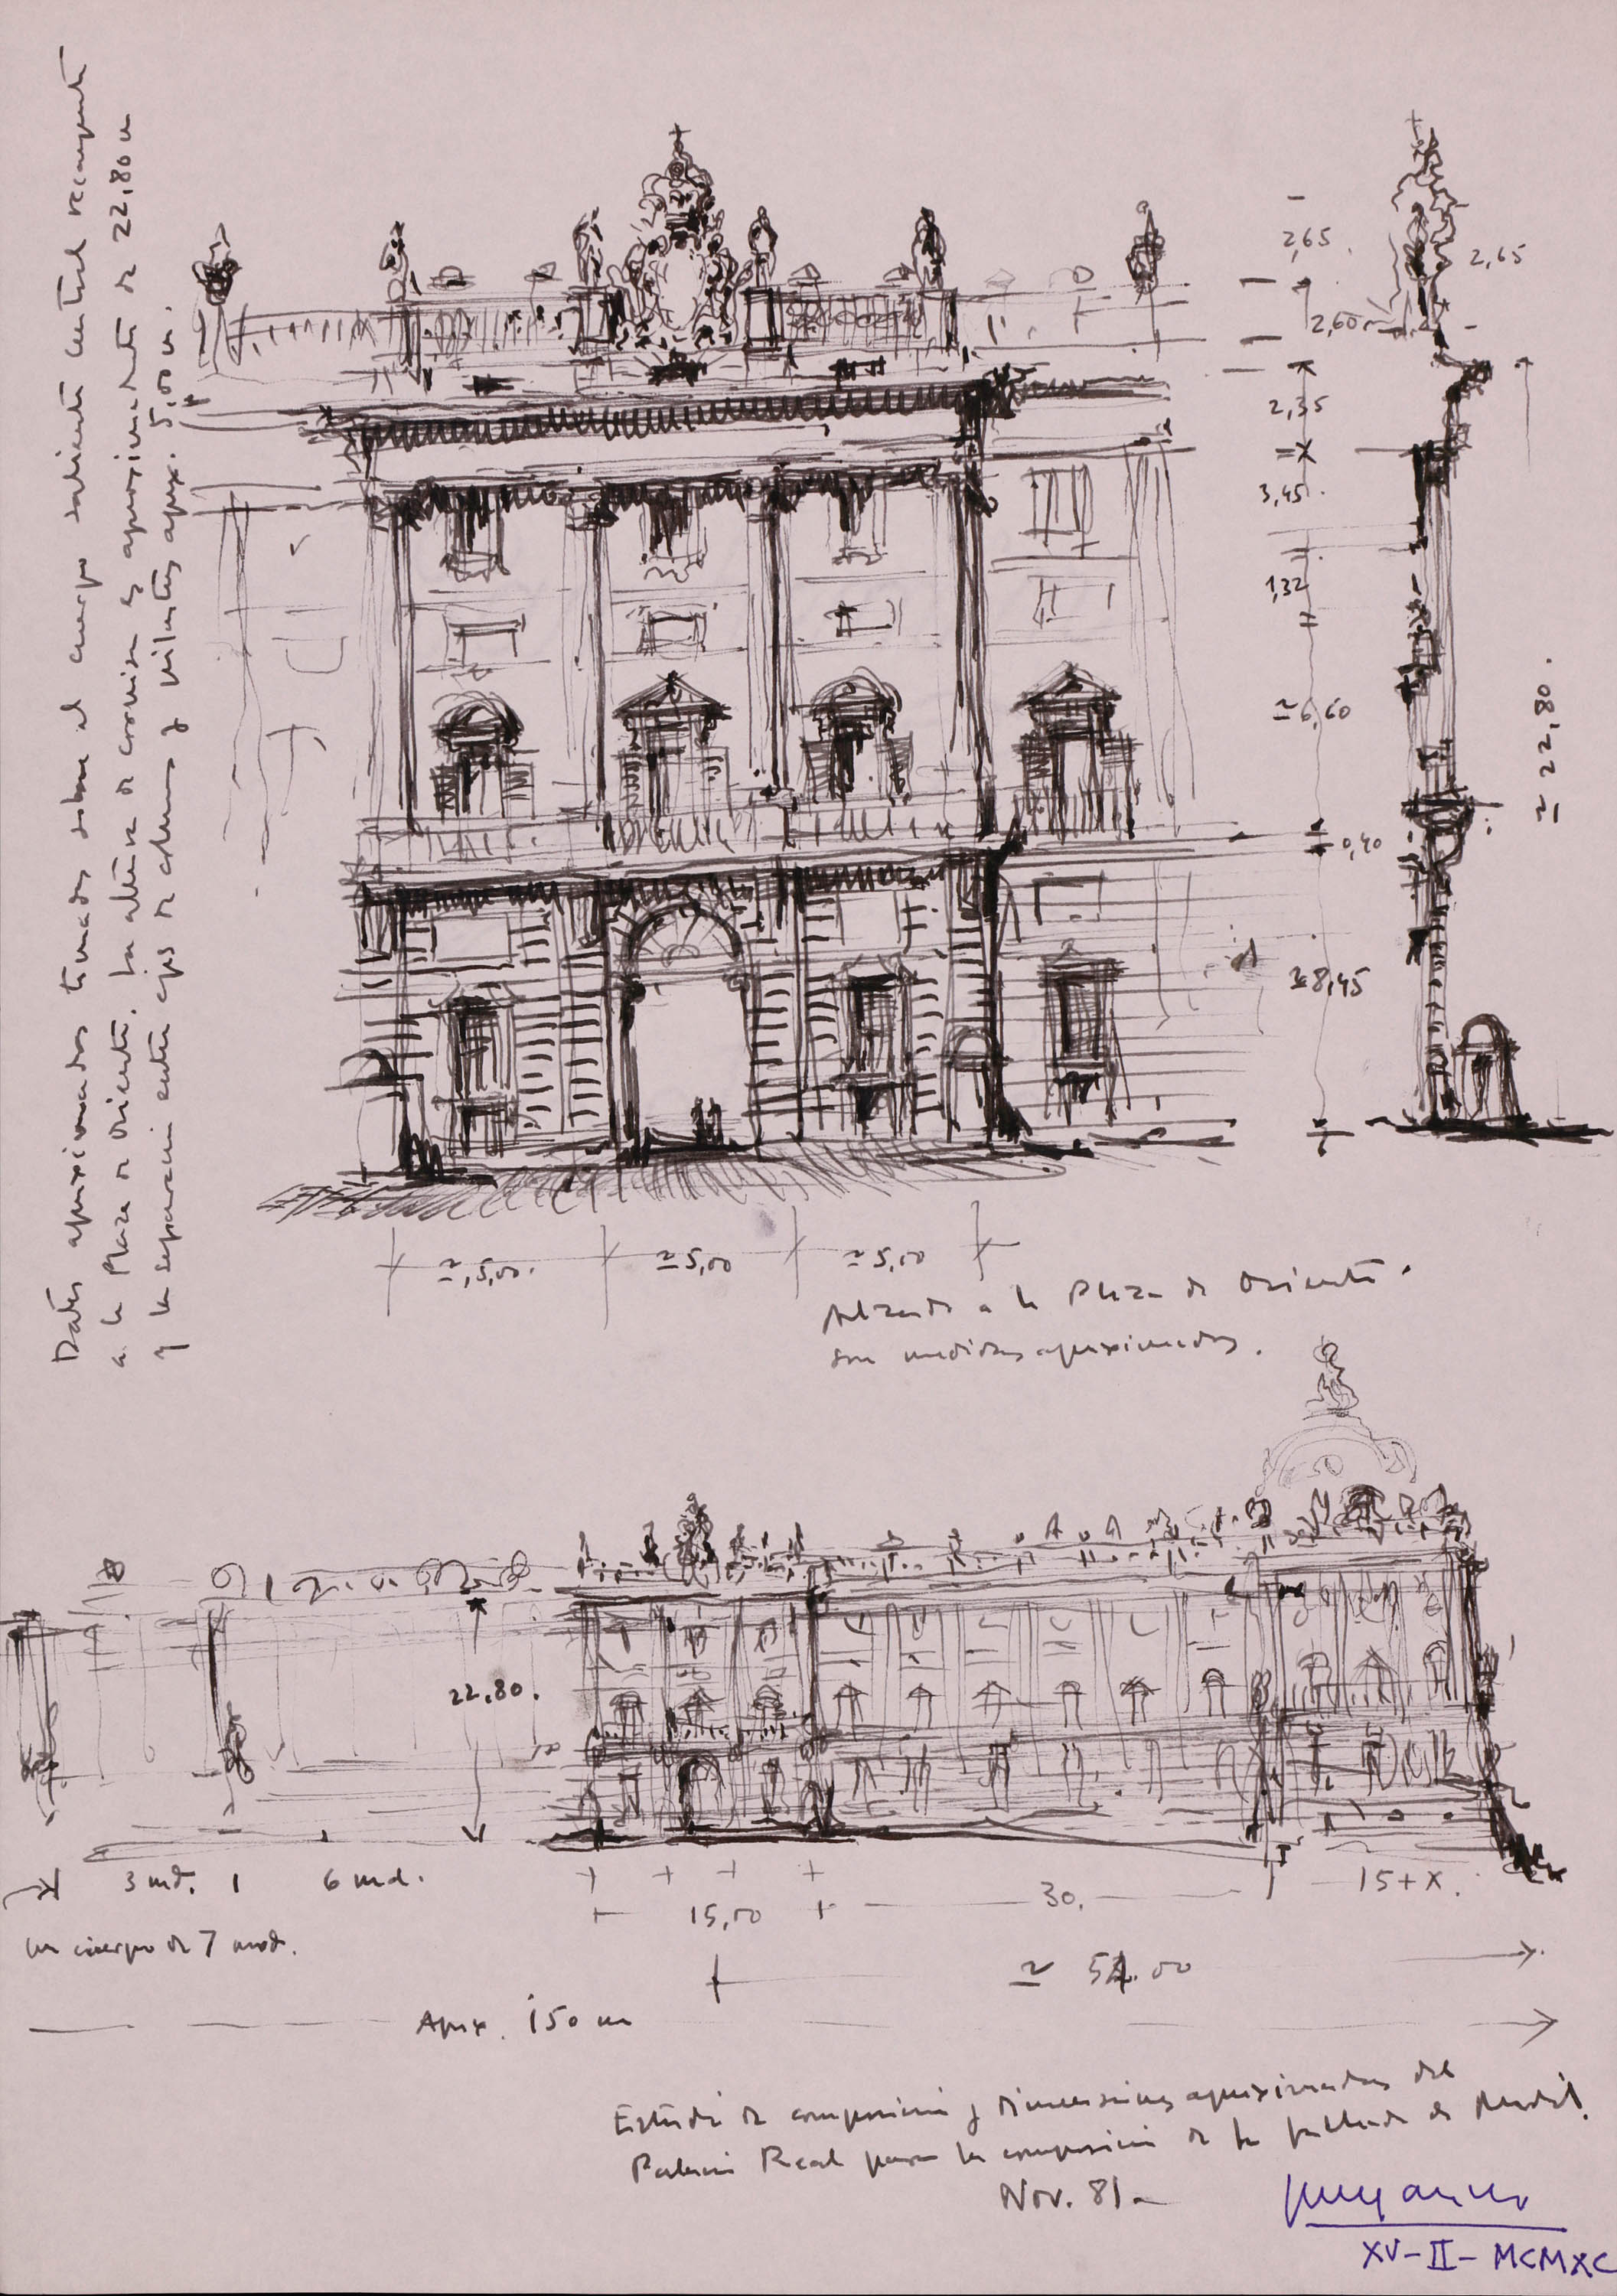 Datos aproximados tomados sobre el cuerpo saliente central recayente
a la Plaza de Oriente. La altura de cornisa es aproximadamente de 22,80 m
y la separación entre ejes de columnas y pilastras aprox. 5,00 m.
2,65
2,65
2,60
2,35
3,45
1,32
≃6,60
≃ 22,80
0,40
≃8,45
≃ 5,00
≃ 5,00
≃ 5,00
Alzado a la Plaza de Oriente.
son medidas aproximadas.
22,80.
3 md.
6 md.
15,00
30.
15+X.
un cuerpo de 7 mod.
≃ 54.00
Aprox. 150 m
Estudio de composición y dimensiones aproximadas del
Palacio Real para la composición de la fachada de Madrid.
Nov. 81.
XV-II-MCMXC